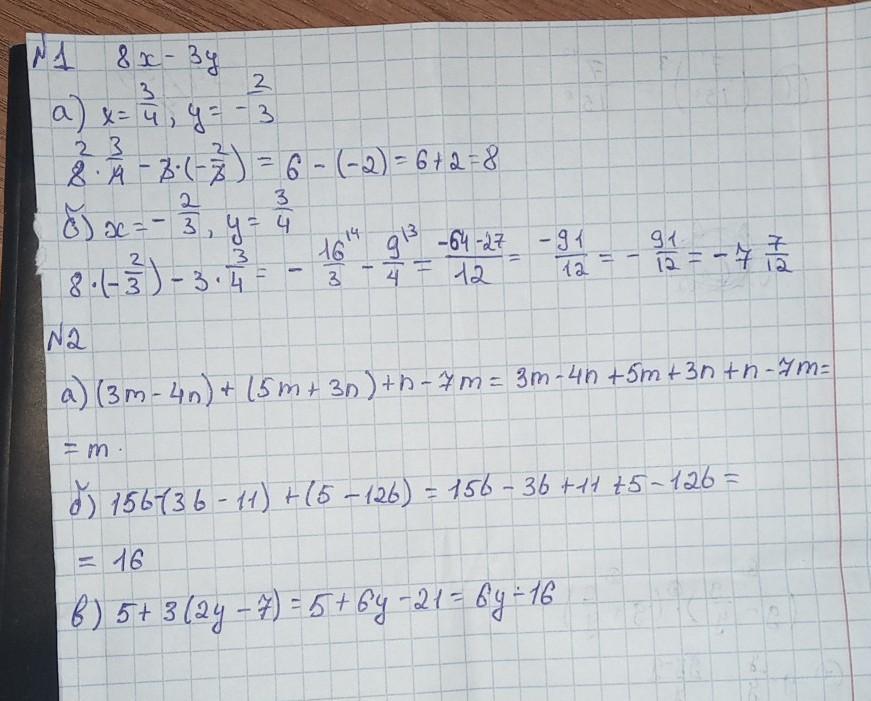 №1 8x - 3y
а) x = 3/4, y = -2/3
8² · 3/4 - 3 · (-2/3) = 6 - (-2) = 6 + 2 = 8
б) x = -2/3, y = 3/4
8 · (-2/3) - 3 · 3/4 = - 16/3 ^14 - 9/4 ^13 = -64-27/12 = -91/12 = - 91/12 = -7 7/12
№2
а) (3m - 4n) + (5m + 3n) + n - 7m = 3m - 4n + 5m + 3n + n - 7m =
= m.
б) 15b - (3b - 11) + (5 - 12b) = 15b - 3b + 11 + 5 - 12b =
= 16
в) 5 + 3(2y - 7) = 5 + 6y - 21 = 6y - 16